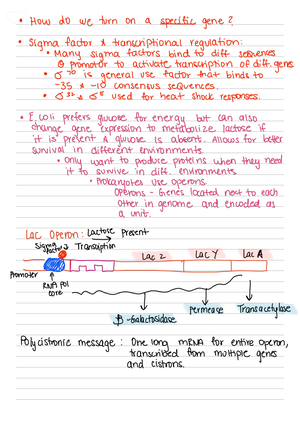 • How do we turn on a specific gene?
• Sigma factor & transcriptional regulation:
• Many sigma factors bind to diff sequences
@ promoter to activate transcription of diff. genes
• σ⁷⁰ is general use factor that binds to
-35 & -10 consensus sequences.
• σ³² & σ used for heat shock responses.
• E. coli prefers glucose for energy but can also
change gene expression to metabolize lactose if
it is present & glucose is absent. Allows for better
survival in different environments.
• Only want to produce proteins when they need
it to survive in diff. environments
• Prokaryotes use operons.
Operons - Genes located next to each
other in genome and encoded as
a unit.
Lac Operon: Lactose Present
Sigma factor
Transcription
Lac Z Lac Y Lac A
Promoter
RNA Pol
core
β-Galactosidase Permease Transacetylase
Polycistronic message: One long mRNA for entire operon,
transcribed from multiple genes
and cistrons.